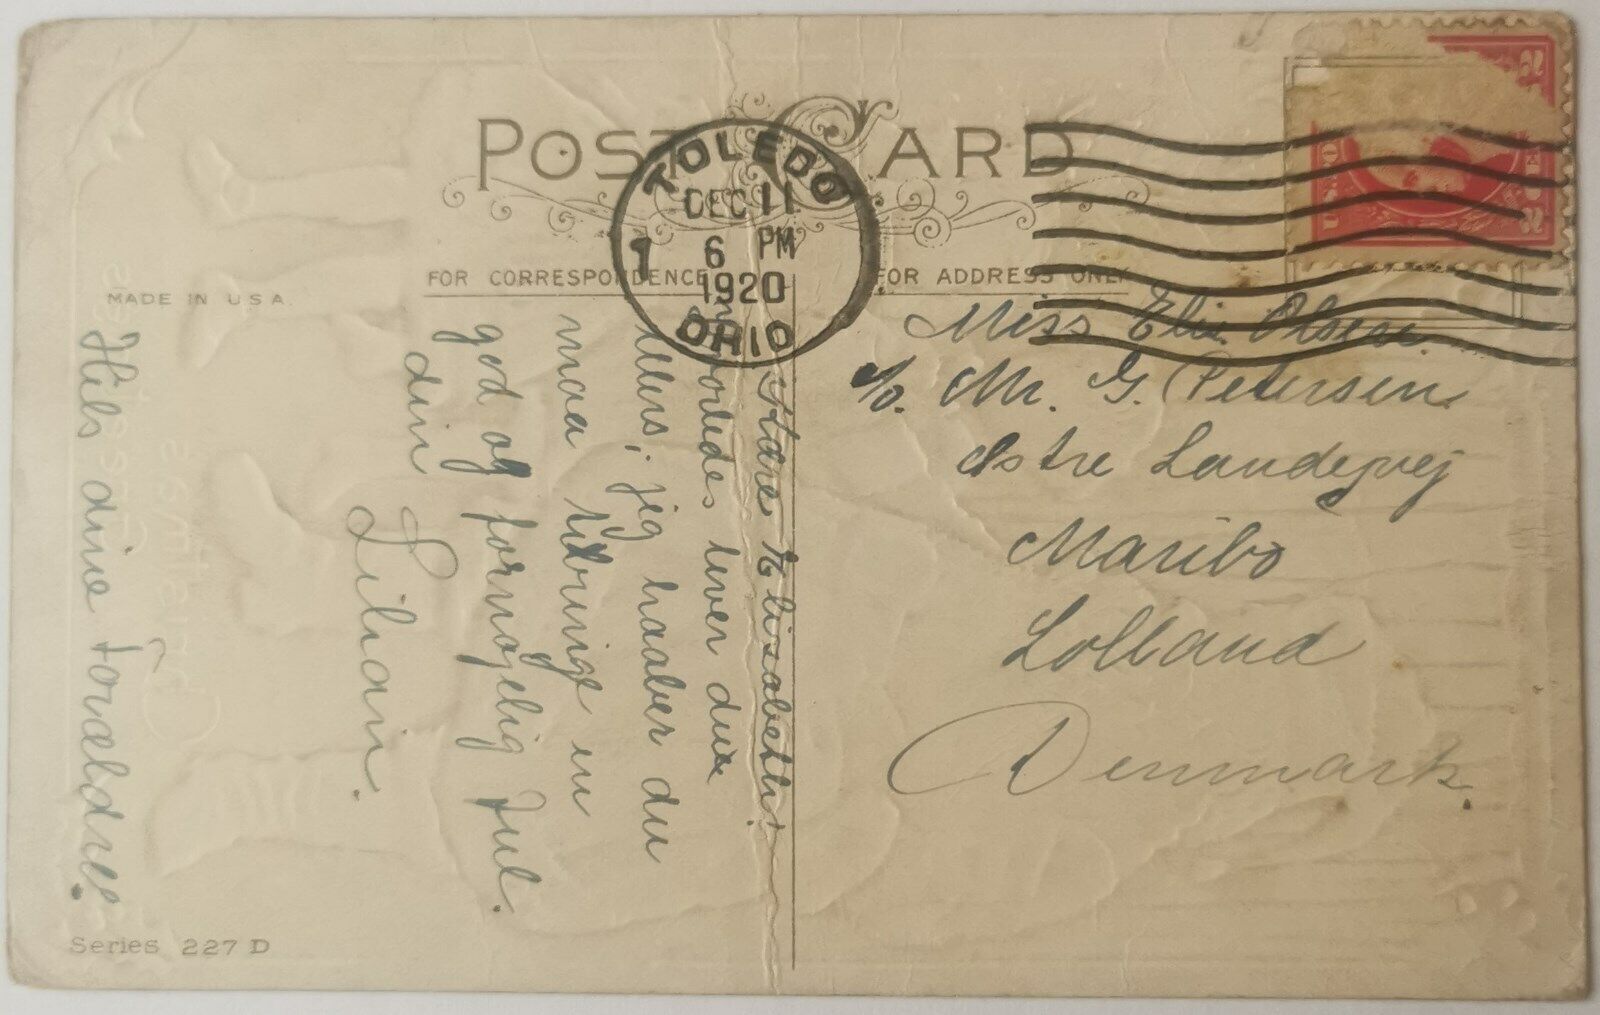 POST CARD
TOLEDO
DEC 11
6 PM
1920
OHIO
1
FOR CORRESPONDENCE
FOR ADDRESS ONLY
MADE IN U.S.A.
Kære Elisabeth!
Hvorledes lever du
ellers, jeg haaber du
maa tilbringe en
god og fornøjelig Jul.
din
Lilliain.
Hils dine Forældre.
Miss Elis Olsen
c/o. Mr. G. Petersen
Østre Landevej
Maribo
Lolland
Denmark.
Series 227 D